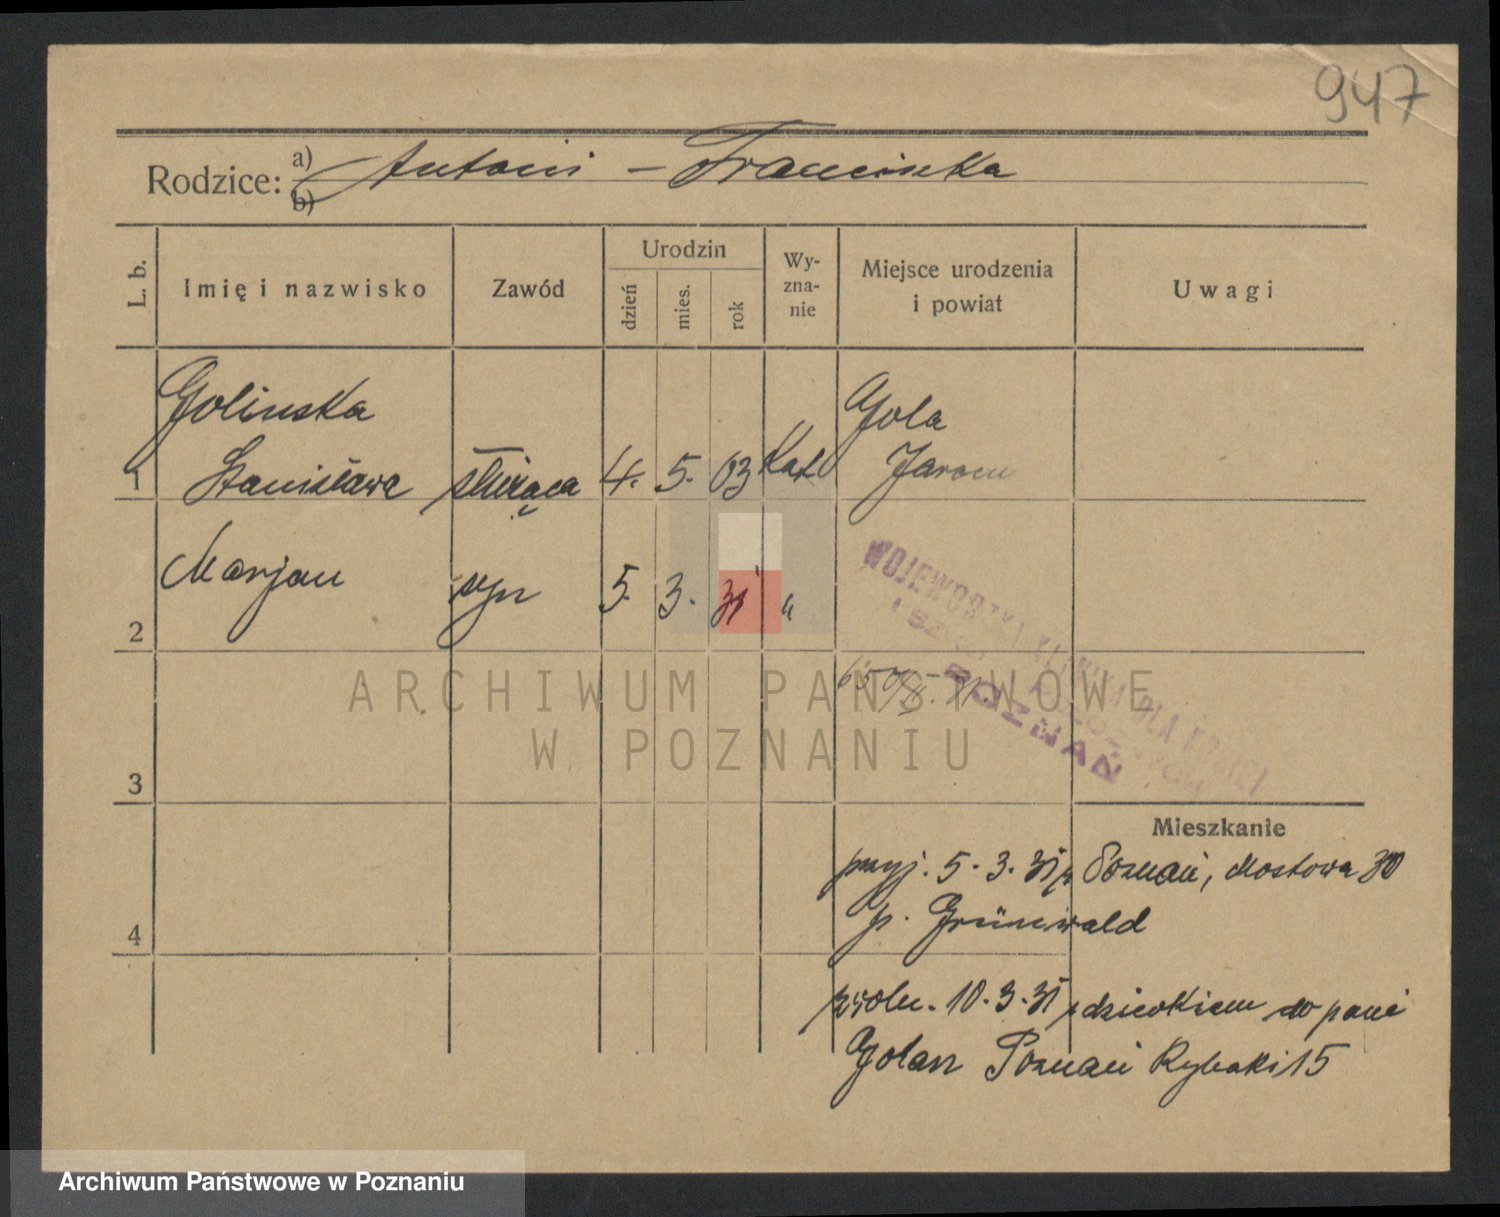 947
Rodzice: a) Antoni - Franciszka
b)
L. b.
Imię i nazwisko
Zawód
Urodzin
dzień
mies.
rok
Wy-
zna-
nie
Miejsce urodzenia
i powiat
Uwagi
1
Golinska
Stanisława
służąca
4. 5. 03
Kat
Gola
Jarocin
2
Marjan
syn
5. 3. 31
"
WOJEWÓDZKA KLINIKA DLA KOBIET
POZNAŃ
ARCHIWUM PAŃSTWOWE
W POZNANIU
3
Mieszkanie
4
przyj. 5.3.31 z Poznań, Mostowa 30
p. Grünwald
zwoln. 10.3.31 z dzieckiem do pani
Golasz Poznań Rybaki 15
Archiwum Państwowe w Poznaniu